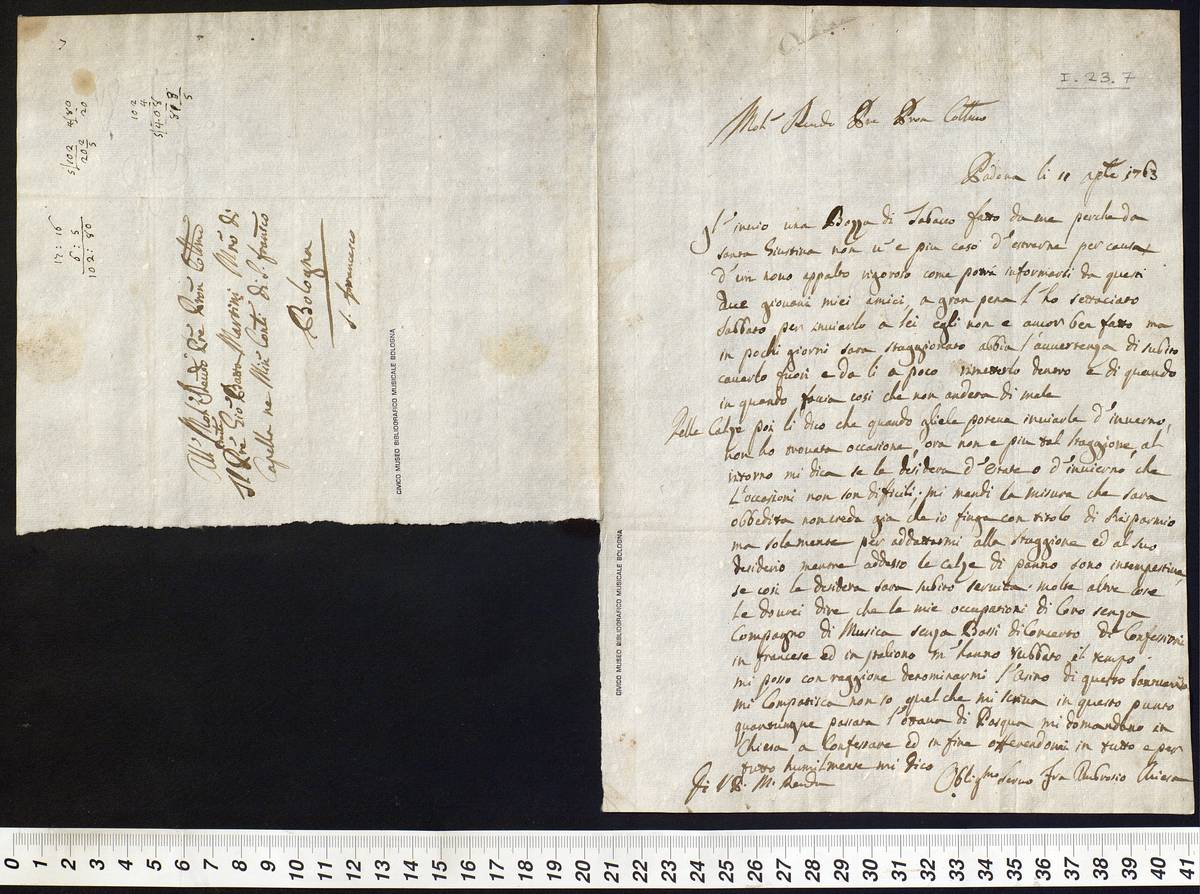 I. 23. 7
Mol.º Rendo Pre Pron Colmo
Padova li 11 aple 1763
Gl'invio una Bozza di Tabacco fatto da me perche da
santa Giustina non v'e piu caso d'estrarne per causa
d'un novo appalto rigoroso come potrà informarsi da questi
due giovani miei amici, a gran pena l'ho settaciato
sabbato per inviarlo a lei egli non e ancor ben fatto ma
in pochi giorni sara staggionato abbia l'avvertenza di subito
cavarlo fuori e da li a poco rimetterlo dentro e di quando
in quando farra cosi che non andera di male
Delle Calze poi li dico che quando gliele poteva inviarle d'inverno,
non ho trovata occasione, ora non e piu tal staggione, al
intorno mi dica se le desidera d'Estate o d'invierno, che
L'occasioni non son difficili, mi mandi la misura che sara
obbedita non creda gia che io finga con titolo di Risparmio
ma solamente per addattarmi alla staggione ed al suo
desiderio mentre addesso le calze di panno sono intempestive,
se cosi le desidera sara subito servita. molte altre cose
Le dovrei dire che le mie occupazioni di Coro senza
Compagno di Musica senza Bassi di Concerto di Confessioni
in francese ed in italiono m'hanno rubbato il tempo.
mi posso con raggione denominarmi l'Asino di questo Santuario
mi Compatisca non so quel che mi scriva in questo punto
quantunque passata l'ottava di Pasqua mi domandano in
Chiesa a Confessare ed in fine offerendomi in tutto e per
tutto humilmente mi dico
Di V. P. M. Renda
Obligmo servo Fra Ambrosio Chiesa
Al Mol. Rendo Pre Pron Colmo
Il Pre Gio Batta Martini Mro di
Capella ne Min. Conti di S. Franco
Bologna
S. Francesco
17:16
6:5
102:80
5/102
202
5
4/80
20
102
4
5/408
81 8
5
CIVICO MUSEO BIBLIOGRAFICO MUSICALE BOLOGNA
CIVICO MUSEO BIBLIOGRAFICO MUSICALE BOLOGNA
0 1 2 3 4 5 6 7 8 9 10 11 12 13 14 15 16 17 18 19 20 21 22 23 24 25 26 27 28 29 30 31 32 33 34 35 36 37 38 39 40 41